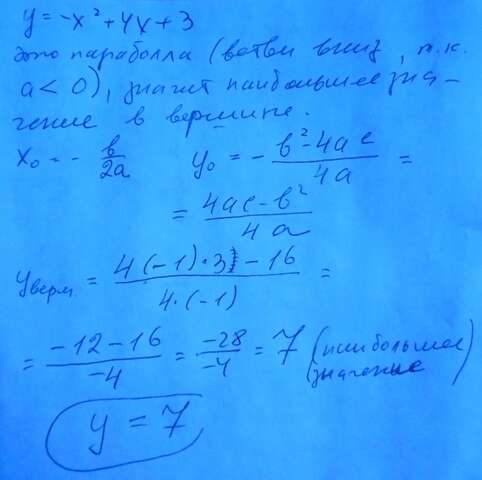 y = -x² + 4x + 3
это параболла (ветви вниз, т.к.
a < 0), значит наибольшее зна-
чение в вершине.
x₀ = - b/2a y₀ = - (b² - 4ac)/4a =
= (4ac - b²)/4a
y верм. = (4(-1)·3 - 16)/(4·(-1)) =
= (-12 - 16)/-4 = -28/-4 = 7 (наибольшее
значение)
y = 7